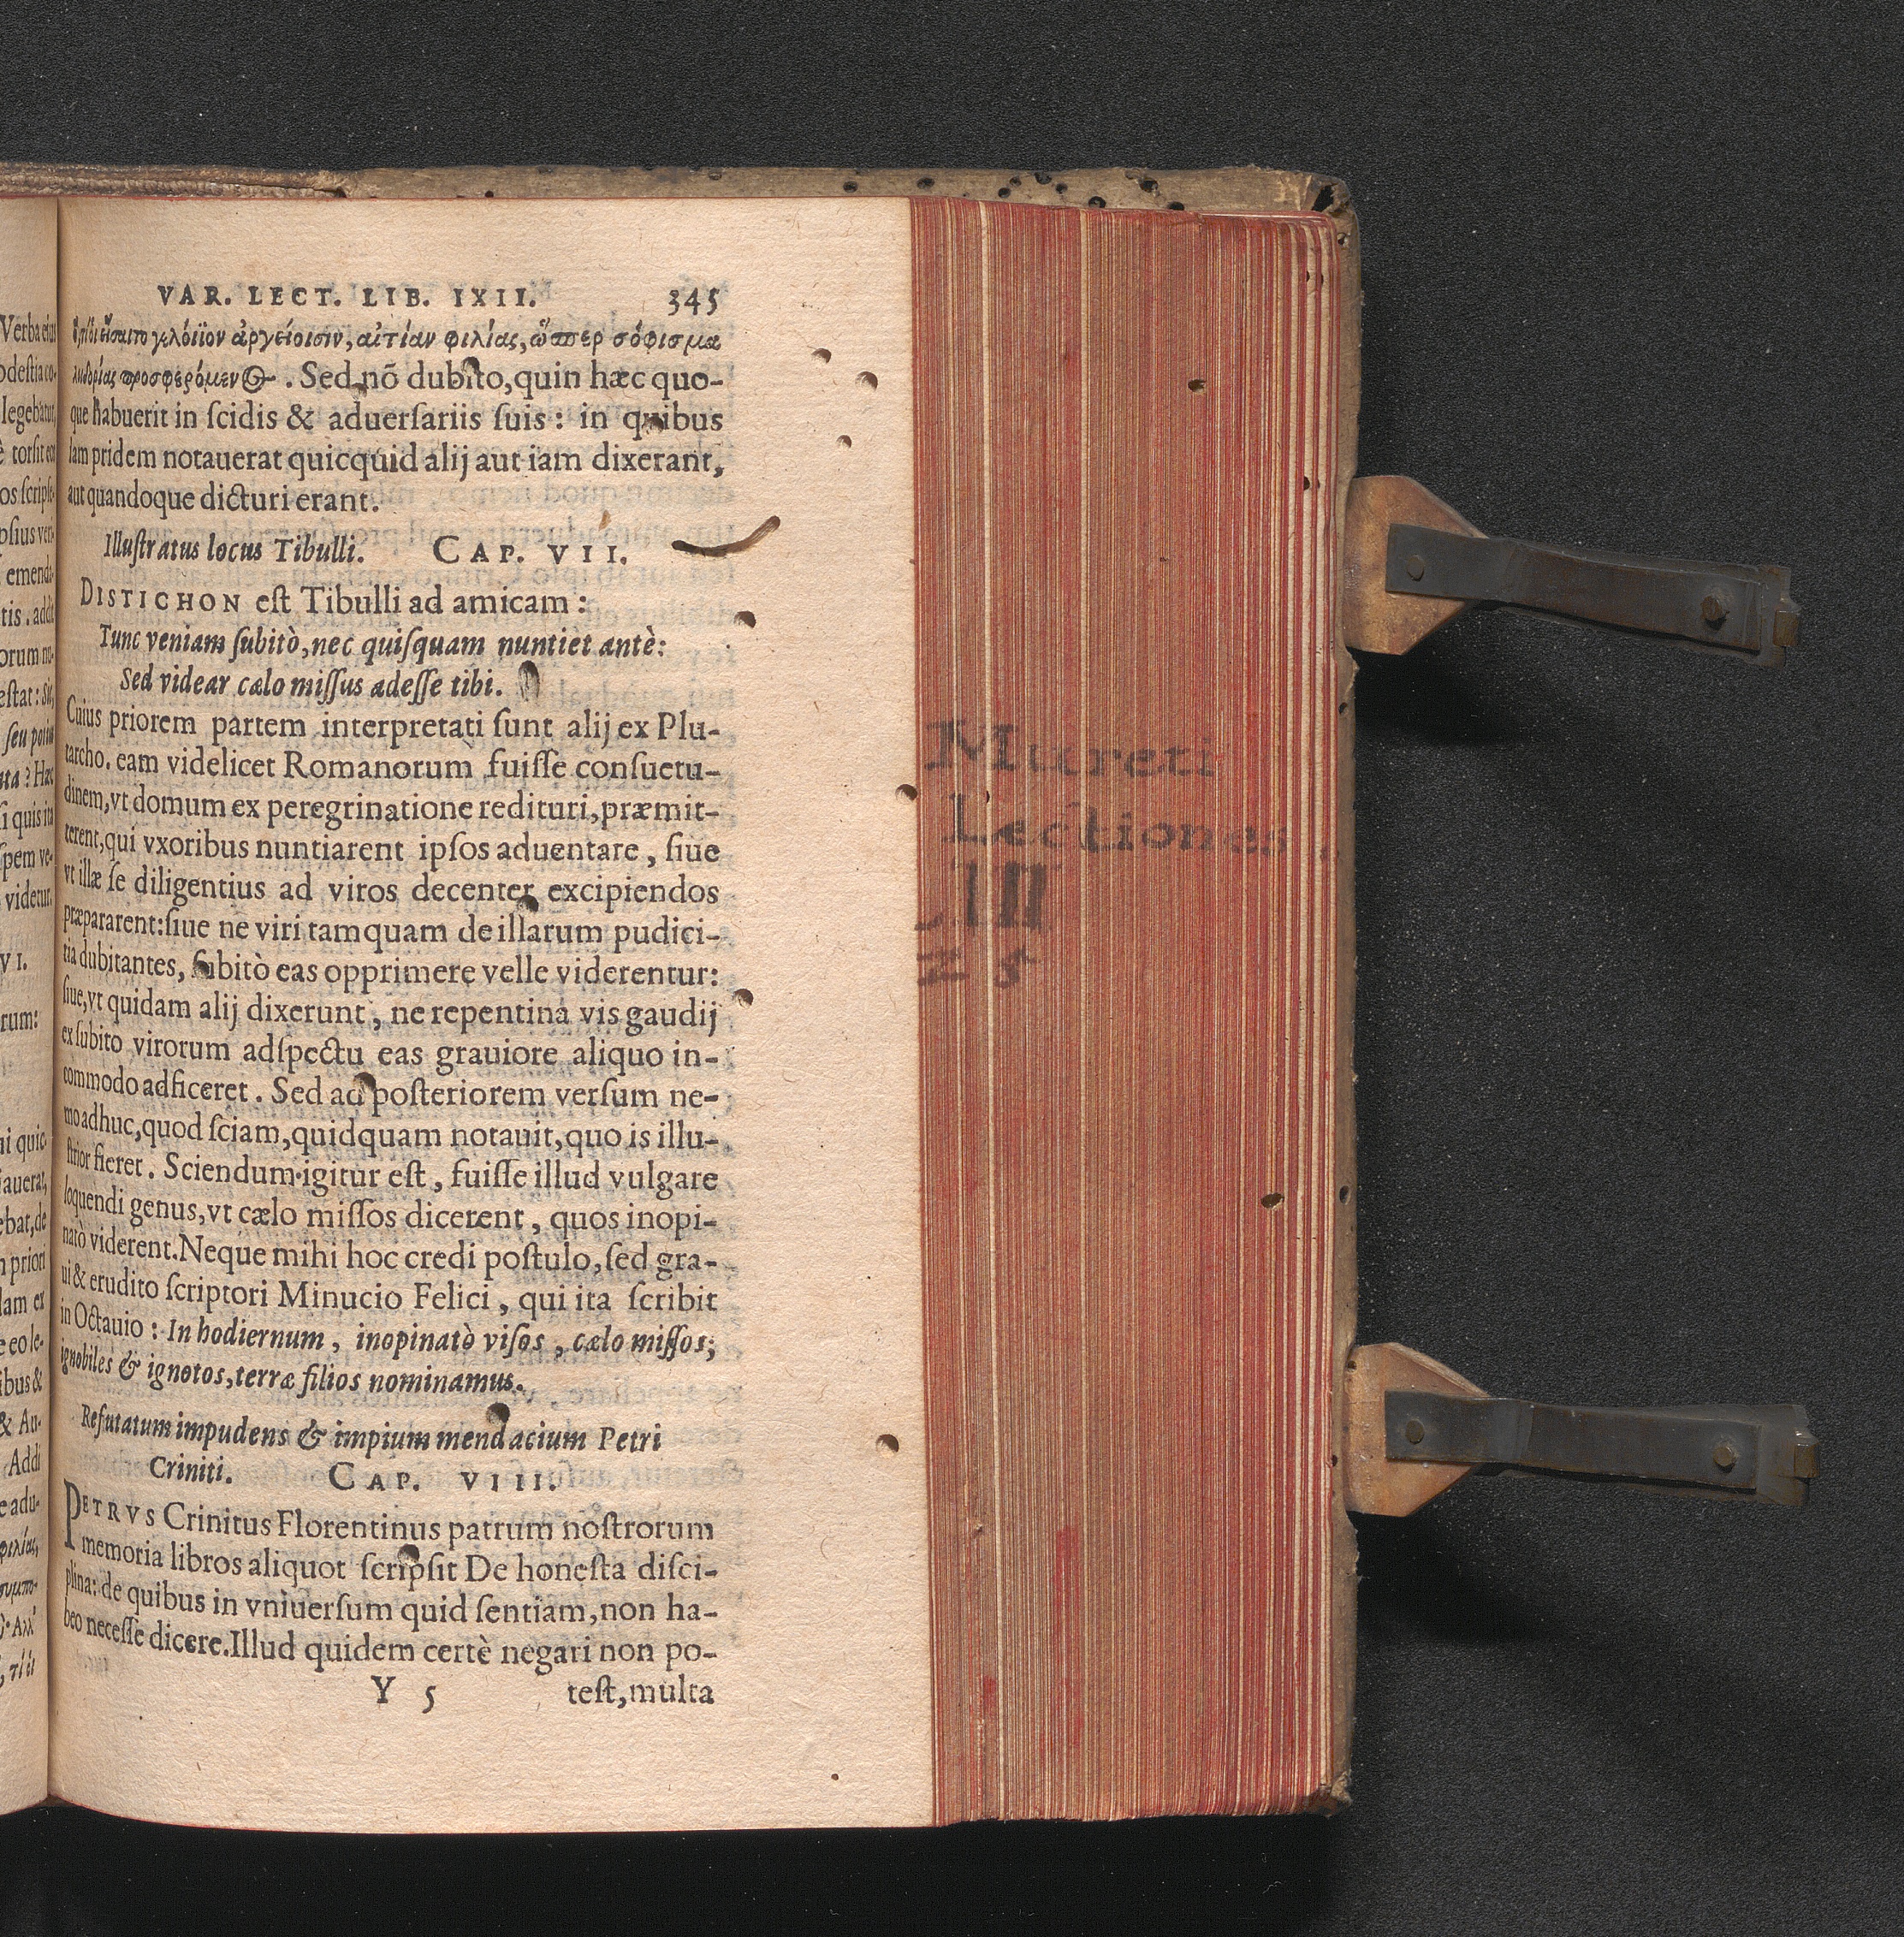 VAR. LECT. LIB. IXII. 345
γελόιϊον ἀργείοισιν, αἰτίαν φιλίας, ὥσπερ σόφισμα
προσφερόμενος. Sed nõ dubito, quin hæc quo-
que habuerit in ſcidis & aduerſariis ſuis: in quibus
iam pridem notauerat quicquid alij aut iam dixerant,
aut quandoque dicturi erant.
Illuſtratus locus Tibulli. CAP. VII.
DISTICHON eſt Tibulli ad amicam:
Tunc veniam ſubitò, nec quiſquam nuntiet antè:
Sed videar cælo miſſus adeſſe tibi.
Cuius priorem partem interpretati ſunt alij ex Plu-
tarcho. eam videlicet Romanorum fuiſſe conſuetu-
dinem, vt domum ex peregrinatione redituri, præmit-
terent, qui vxoribus nuntiarent ipſos aduentare, ſiue
vt illæ ſe diligentius ad viros decenter excipiendos
præpararent: ſiue ne viri tamquam de illarum pudici-
tia dubitantes, ſubitò eas opprimere velle viderentur:
ſiue, vt quidam alij dixerunt, ne repentina vis gaudij
ex ſubito virorum adſpectu eas grauiore aliquo in-
commodo adficeret. Sed ad poſteriorem verſum ne-
mo adhuc, quod ſciam, quidquam notauit, quo is illu-
ſtrior fieret. Sciendum igitur eſt, fuiſſe illud vulgare
loquendi genus, vt cælo miſſos dicerent, quos inopi-
natò viderent. Neque mihi hoc credi poſtulo, ſed gra-
ui & erudito ſcriptori Minucio Felici, qui ita ſcribit
in Octauio: In hodiernum, inopinatò viſos, cælo miſſos;
ignobiles & ignotos, terræ filios nominamus.
Refutatum impudens & impium mendacium Petri
Criniti. CAP. VIII.
PETRVS Crinitus Florentinus patrum noſtrorum
memoria libros aliquot ſcripſit De honeſta diſci-
plina: de quibus in vniuerſum quid ſentiam, non ha-
beo neceſſe dicere. Illud quidem certè negari non po-
Y 5 teſt, multa
Mureti
Lectiones
III
Z 5